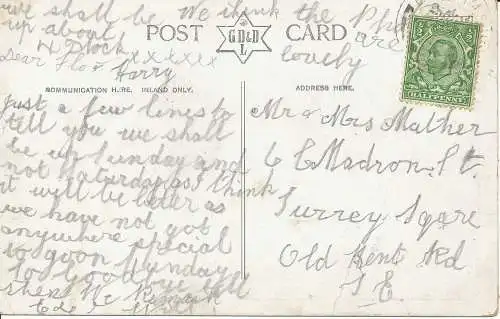 we shall be
up about
H Block
We think the
are
lovely
xxxxxx
Harry
POST CARD
G.D&D
L
HALFPENNY
Dear Flo
COMMUNICATION HERE. INLAND ONLY.
ADDRESS HERE.
Just a few lines to
tell you we shall
be up Sunday and
not Saturday as I think
it will be better as
we have not got
anywhere special
to go on Sunday
so Goodbye till
then We Remain
Mr & Mrs Mather
6 Madron St
Surrey Sqare
Old Kent Rd
S E